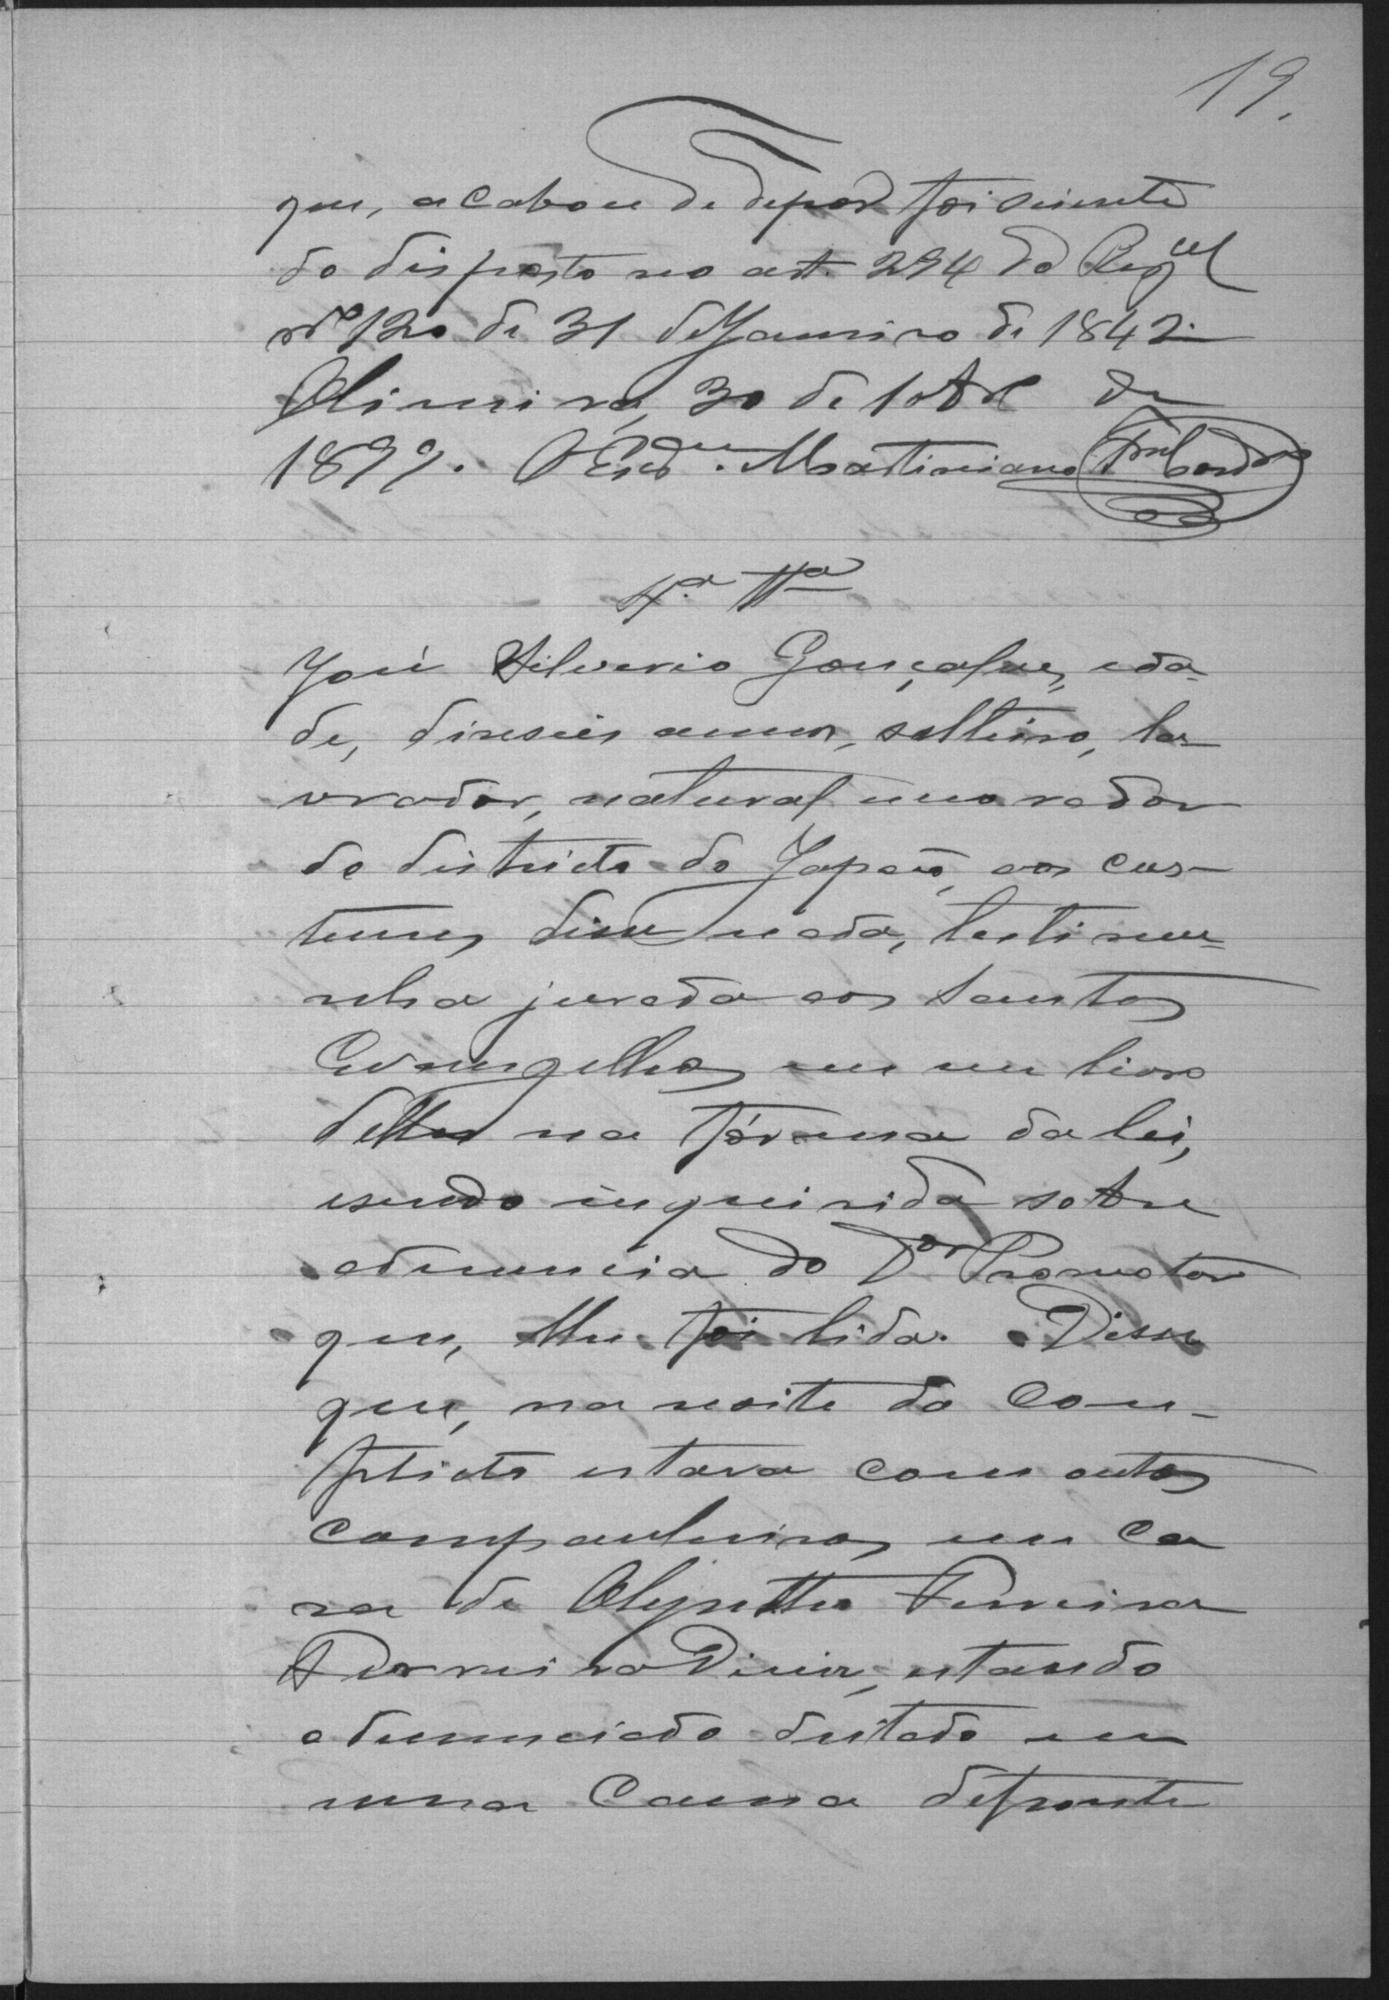 19.
que, acabou de depor foi sciente
do disposto no art. 294 do Regul
nº 120 de 31 de Janeiro de 1842.
Oliveira, 30 de 10bre de
1899. O Escr. Martiniano
4.ª Tª
José Silverio Gonçalves, ida-
de, diseseis annos, solteiro, la-
vrador, natural e morador
do districto do Japão, aos cos-
tumes disse nada, testimu-
nha jurada aos Santos
Evangelhos em um livro
delles na fórma da lei,
e sendo inquirida sobre
a denuncia do Dor Promotor
que, lhe foi lida. Disse
que, na noite do con-
flicto estava com outros
companheiros em ca
sa de Olyntho Ferreira
Ferreira Diniz, estando
o denunciado deitado em
uma cama defronte